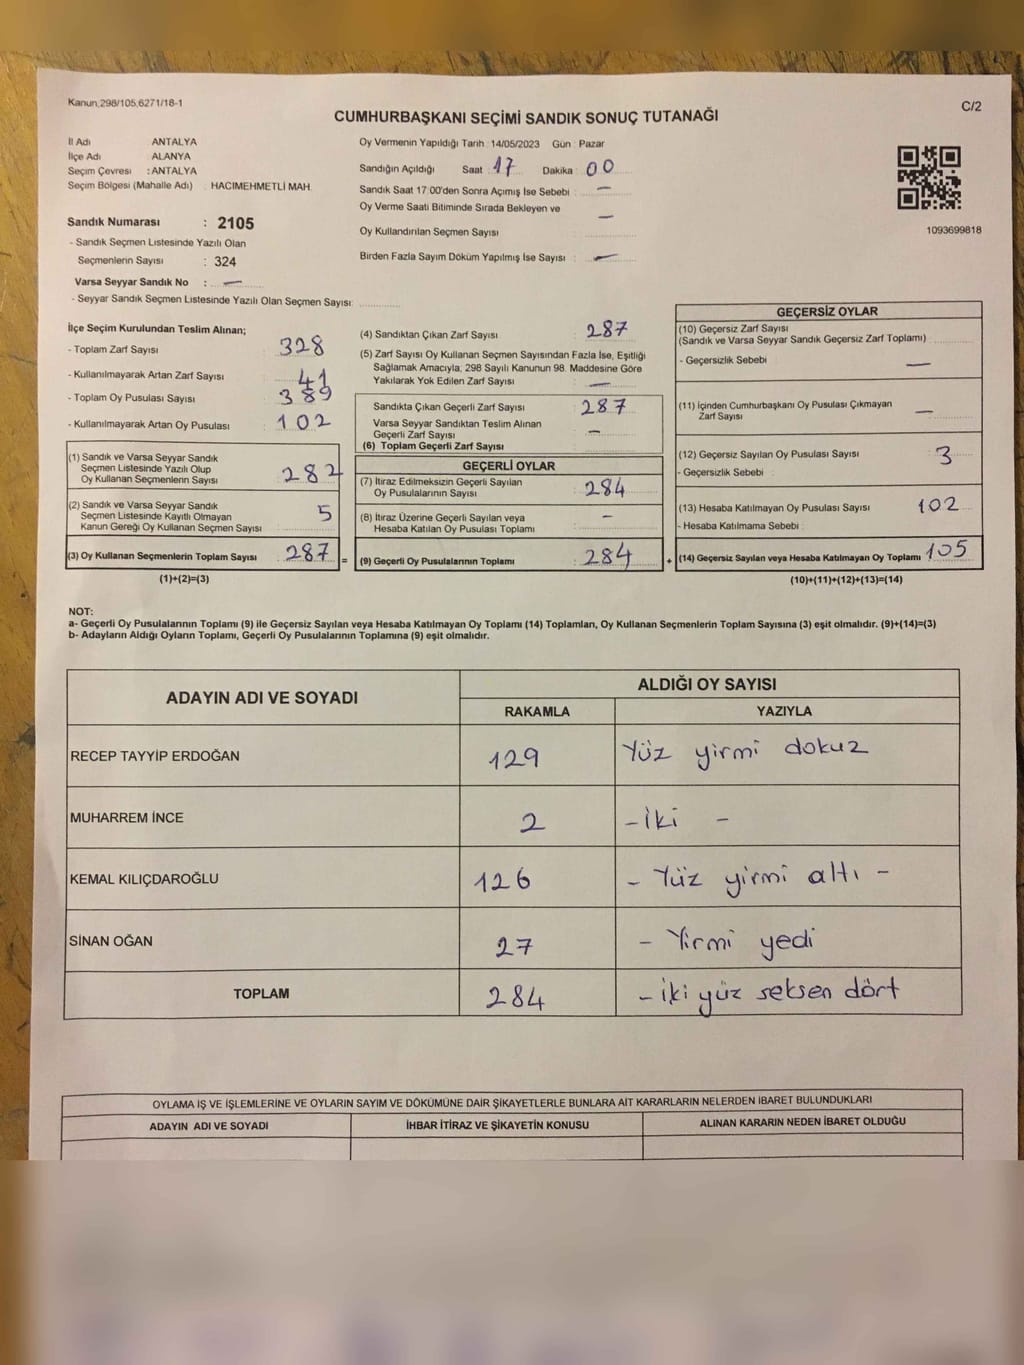 Kanun,298/105,6271/18-1
C/2
CUMHURBAŞKANI SEÇİMİ SANDIK SONUÇ TUTANAĞI
İl Adı ANTALYA
İlçe Adı ALANYA
Seçim Çevresi : ANTALYA
Seçim Bölgesi (Mahalle Adı) HACIMEHMETLİ MAH.
Oy Vermenin Yapıldığı Tarih : 14/05/2023 Gün : Pazar
Sandığın Açıldığı Saat : 17 Dakika : 00
Sandık Saat 17:00'den Sonra Açımış İse Sebebi : –
Oy Verme Saati Bitiminde Sırada Bekleyen ve
Oy Kullandırılan Seçmen Sayısı –
Birden Fazla Sayım Döküm Yapılmış İse Sayısı : –
1093699818
Sandık Numarası : 2105
- Sandık Seçmen Listesinde Yazılı Olan
Seçmenlerin Sayısı : 324
Varsa Seyyar Sandık No : –
- Seyyar Sandık Seçmen Listesinde Yazılı Olan Seçmen Sayısı:
İlçe Seçim Kurulundan Teslim Alınan;
- Toplam Zarf Sayısı 328
- Kullanılmayarak Artan Zarf Sayısı 41
- Toplam Oy Pusulası Sayısı 389
- Kullanılmayarak Artan Oy Pusulası 102
(1) Sandık ve Varsa Seyyar Sandık
Seçmen Listesinde Yazılı Olup
Oy Kullanan Seçmenlerin Sayısı 282
(2) Sandık ve Varsa Seyyar Sandık
Seçmen Listesinde Kayıtlı Olmayan
Kanun Gereği Oy Kullanan Seçmen Sayısı 5
(3) Oy Kullanan Seçmenlerin Toplam Sayısı 287 =
(1)+(2)=(3)
(4) Sandıktan Çıkan Zarf Sayısı : 287
(5) Zarf Sayısı Oy Kullanan Seçmen Sayısından Fazla İse, Eşitliği
Sağlamak Amacıyla, 298 Sayılı Kanunun 98. Maddesine Göre
Yakılarak Yok Edilen Zarf Sayısı : –
Sandıkta Çıkan Geçerli Zarf Sayısı : 287
Varsa Seyyar Sandıktan Teslim Alınan
Geçerli Zarf Sayısı –
(6) Toplam Geçerli Zarf Sayısı
GEÇERLİ OYLAR
(7) İtiraz Edilmeksizin Geçerli Sayılan
Oy Pusulalarının Sayısı : 284
(8) İtiraz Üzerine Geçerli Sayılan veya
Hesaba Katılan Oy Pusulası Toplamı –
(9) Geçerli Oy Pusulalarının Toplamı : 284 +
GEÇERSİZ OYLAR
(10) Geçersiz Zarf Sayısı
(Sandık ve Varsa Seyyar Sandık Geçersiz Zarf Toplamı)
- Geçersizlik Sebebi : –
(11) İçinden Cumhurbaşkanı Oy Pusulası Çıkmayan
Zarf Sayısı –
(12) Geçersiz Sayılan Oy Pusulası Sayısı 3
- Geçersizlik Sebebi :
(13) Hesaba Katılmayan Oy Pusulası Sayısı 102
- Hesaba Katılmama Sebebi :
(14) Geçersiz Sayılan veya Hesaba Katılmayan Oy Toplamı 105
(10)+(11)+(12)+(13)=(14)
NOT:
a- Geçerli Oy Pusulalarının Toplamı (9) ile Geçersiz Sayılan veya Hesaba Katılmayan Oy Toplamı (14) Toplamları, Oy Kullanan Seçmenlerin Toplam Sayısına (3) eşit olmalıdır. (9)+(14)=(3)
b- Adayların Aldığı Oyların Toplamı, Geçerli Oy Pusulalarının Toplamına (9) eşit olmalıdır.
ADAYIN ADI VE SOYADI ALDIĞI OY SAYISI
RAKAMLA YAZIYLA
RECEP TAYYİP ERDOĞAN 129 Yüz yirmi dokuz
MUHARREM İNCE 2 - iki -
KEMAL KILIÇDAROĞLU 126 - Yüz yirmi altı -
SİNAN OĞAN 27 - Yirmi yedi
TOPLAM 284 - iki yüz seksen dört
OYLAMA İŞ VE İŞLEMLERİNE VE OYLARIN SAYIM VE DÖKÜMÜNE DAİR ŞİKAYETLERLE BUNLARA AİT KARARLARIN NELERDEN İBARET BULUNDUKLARI
ADAYIN ADI VE SOYADI İHBAR İTİRAZ VE ŞİKAYETİN KONUSU ALINAN KARARIN NEDEN İBARET OLDUĞU